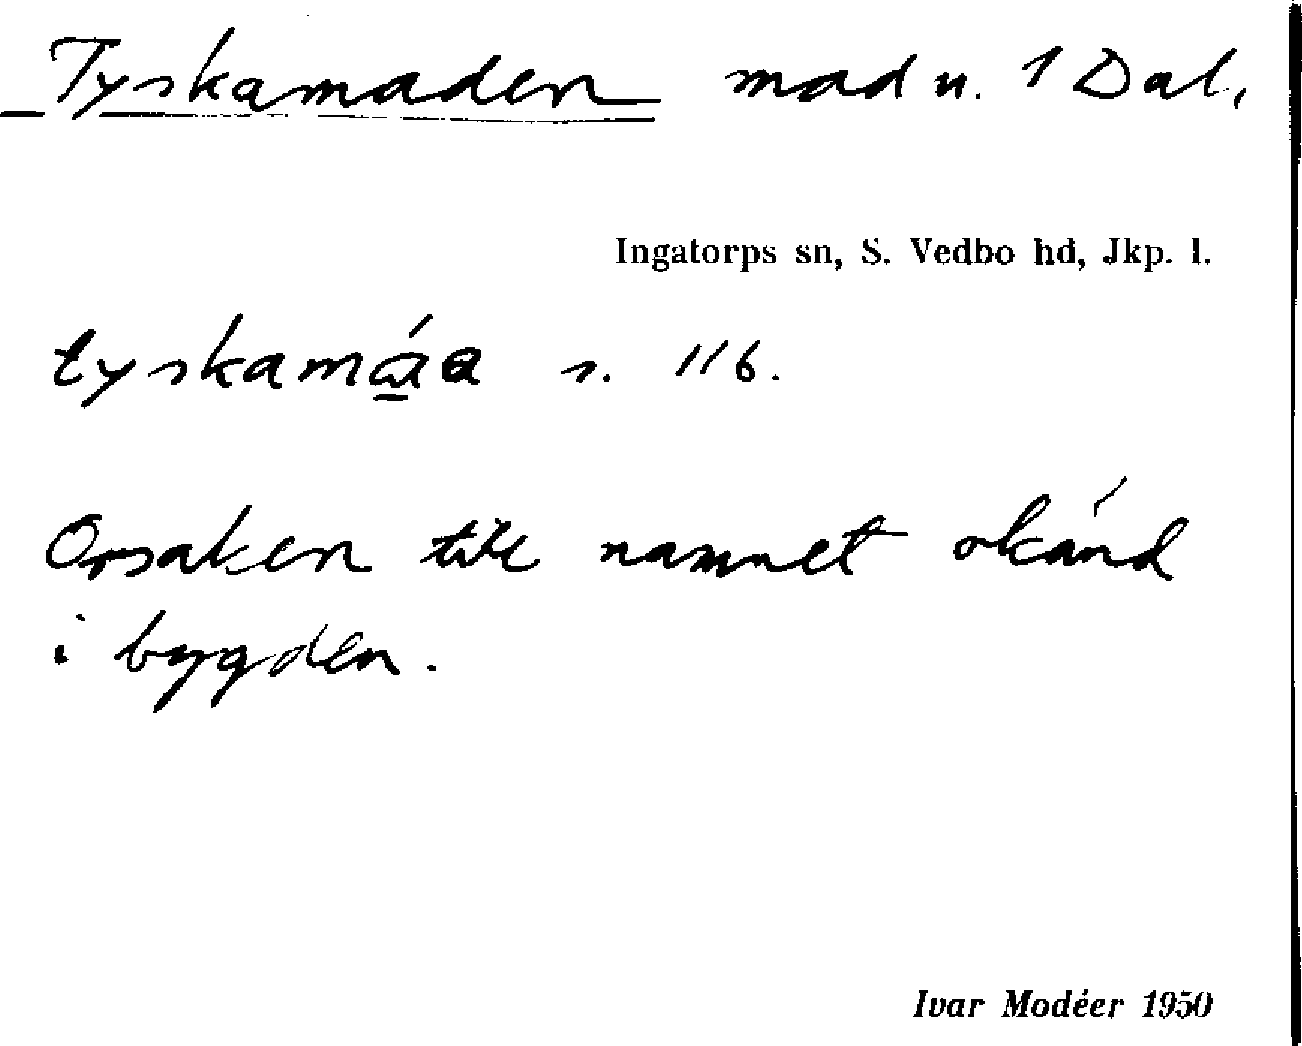 Tyskamaden mad u. 1 Dal,
Ingatorps sn, S. Vedbo hd, Jkp. l.
s. 116.
Orsaken till namnet okänd
i bygden.
Ivar Modéer 1950